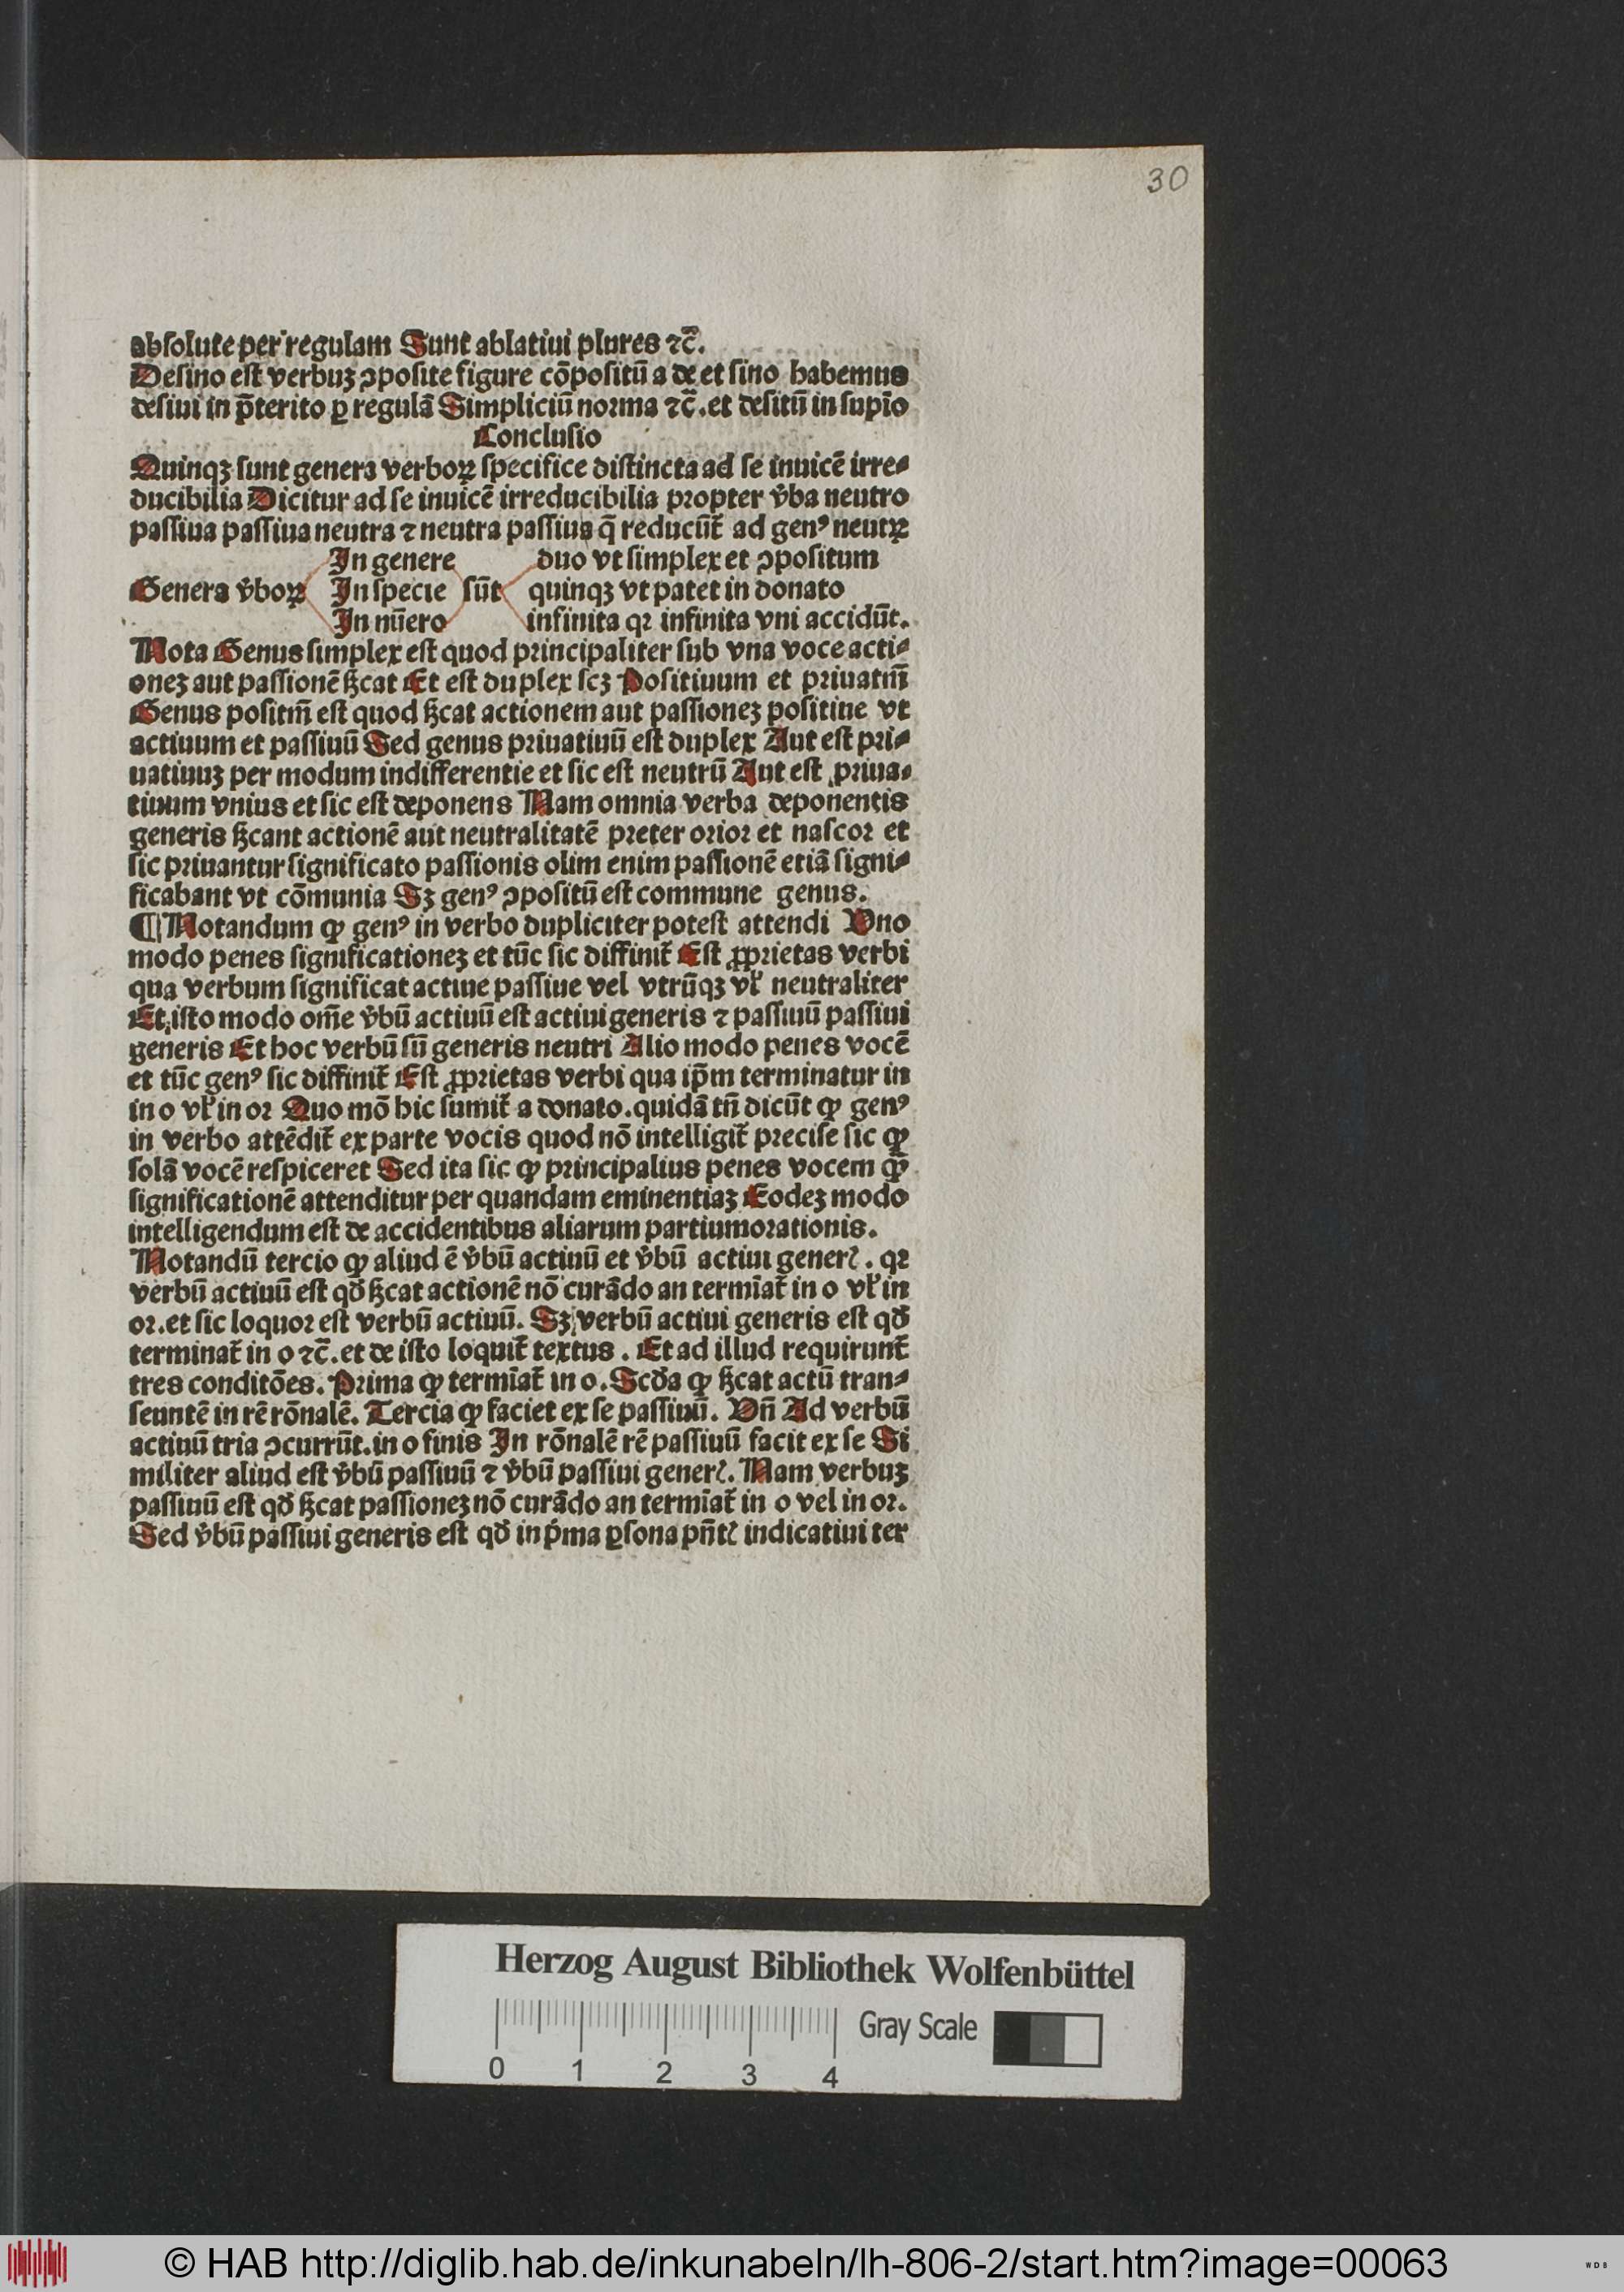 30
absolute per regulam Sunt ablatiui plures ⁊c̄.
Desino est verbuꝫ ꝯposite figure cōpositū a de et sino habemus
desiui in p̄terito ꝑ regulā Simpliciū norma ⁊c̄. et desitū in supīo
Conclusio
Quinqꝫ sunt genera verboꝝ specifice distincta ad se inuicē irre⸗
ducibilia Dicitur ad se inuicē irreducibilia propter v̄ba neutro
passiua passiua neutra ⁊ neutra passiua q̄ reducūt̄ ad genꝰ neutꝝ
In genere duo vt simplex et ꝯpositum
Genera v̄boꝝ In specie sūt quinqꝫ vt patet in donato
In nūero infinita qꝛ infinita vni accidūt.
Nota Genus simplex est quod principaliter sub vna voce acti⸗
oneꝫ aut passionē ßcat Et est duplex scꝫ Positiuum et priuatm̄
Genus positm̄ est quod ßcat actionem aut passioneꝫ positiue vt
actiuum et passiuū Sed genus priuatiuū est duplex Aut est pri⸗
uatiuuꝫ per modum indifferentie et sic est neutrū Aut est priua⸗
tiuum vnius et sic est deponens Nam omnia verba deponentis
generis ßcant actionē aut neutralitatē preter orior et nascor et
sic priuantur significato passionis olim enim passionē etiā signi⸗
ficabant vt cōmunia Sꝫ genꝰ ꝯpositū est commune genus.
¶ Notandum ꝙ genꝰ in verbo dupliciter potest attendi Uno
modo penes significationeꝫ et tūc sic diffinit̄ Est ꝓprietas verbi
qua verbum significat actiue passiue vel vtrūqꝫ vl̄ neutraliter
Et isto modo om̄e v̄bū actiuū est actiui generis ⁊ passiuū passiui
generis Et hoc verbū sū generis neutri Alio modo penes vocē
et tūc genꝰ sic diffinit̄ Est ꝓprietas verbi qua ip̄m terminatur in
in o vl̄ in or Quo mō hic sumit̄ a donato. quidā tn̄ dicūt ꝙ genꝰ
in verbo attēdit̄ ex parte vocis quod nō intelligit̄ precise sic ꝙ
solā vocē respiceret Sed ita sic ꝙ principalius penes vocem ꝙ̄
significationē attenditur per quandam eminentiaꝫ Eodeꝫ modo
intelligendum est de accidentibus aliarum partium orationis.
Notandū tercio ꝙ aliud ē v̄bū actiuū et v̄bū actiui generꝭ. qꝛ
verbū actiuū est qd̄ ßcat actionē nō curādo an termīat̄ in o vl̄ in
or. et sic loquor est verbū actiuū. Sꝫ verbū actiui generis est qd̄
terminat̄ in o ⁊c̄. et de isto loquit̄ textus. Et ad illud requirunt̄
tres conditōes. Prima ꝙ termīat̄ in o. Scd̄a ꝙ ßcat actū tran⸗
seuntē in rē rōnalē. Tercia ꝙ faciet ex se passiuū. Un̄ Ad verbū
actiuū tria ꝯcurrūt. in o finis In rōnalē rē passiuū facit ex se Si
militer aliud est v̄bū passiuū ⁊ v̄bū passiui generꝭ. Nam verbuꝫ
passiuū est qd̄ ßcat passioneꝫ nō curādo an termīat̄ in o vel in or.
Sed v̄bū passiui generis est qd̄ in p̄ma ꝑsona pn̄tꝭ indicatiui ter
Herzog August Bibliothek Wolfenbüttel
Gray Scale
0 1 2 3 4
© HAB http://diglib.hab.de/inkunabeln/lh-806-2/start.htm?image=00063
WDB